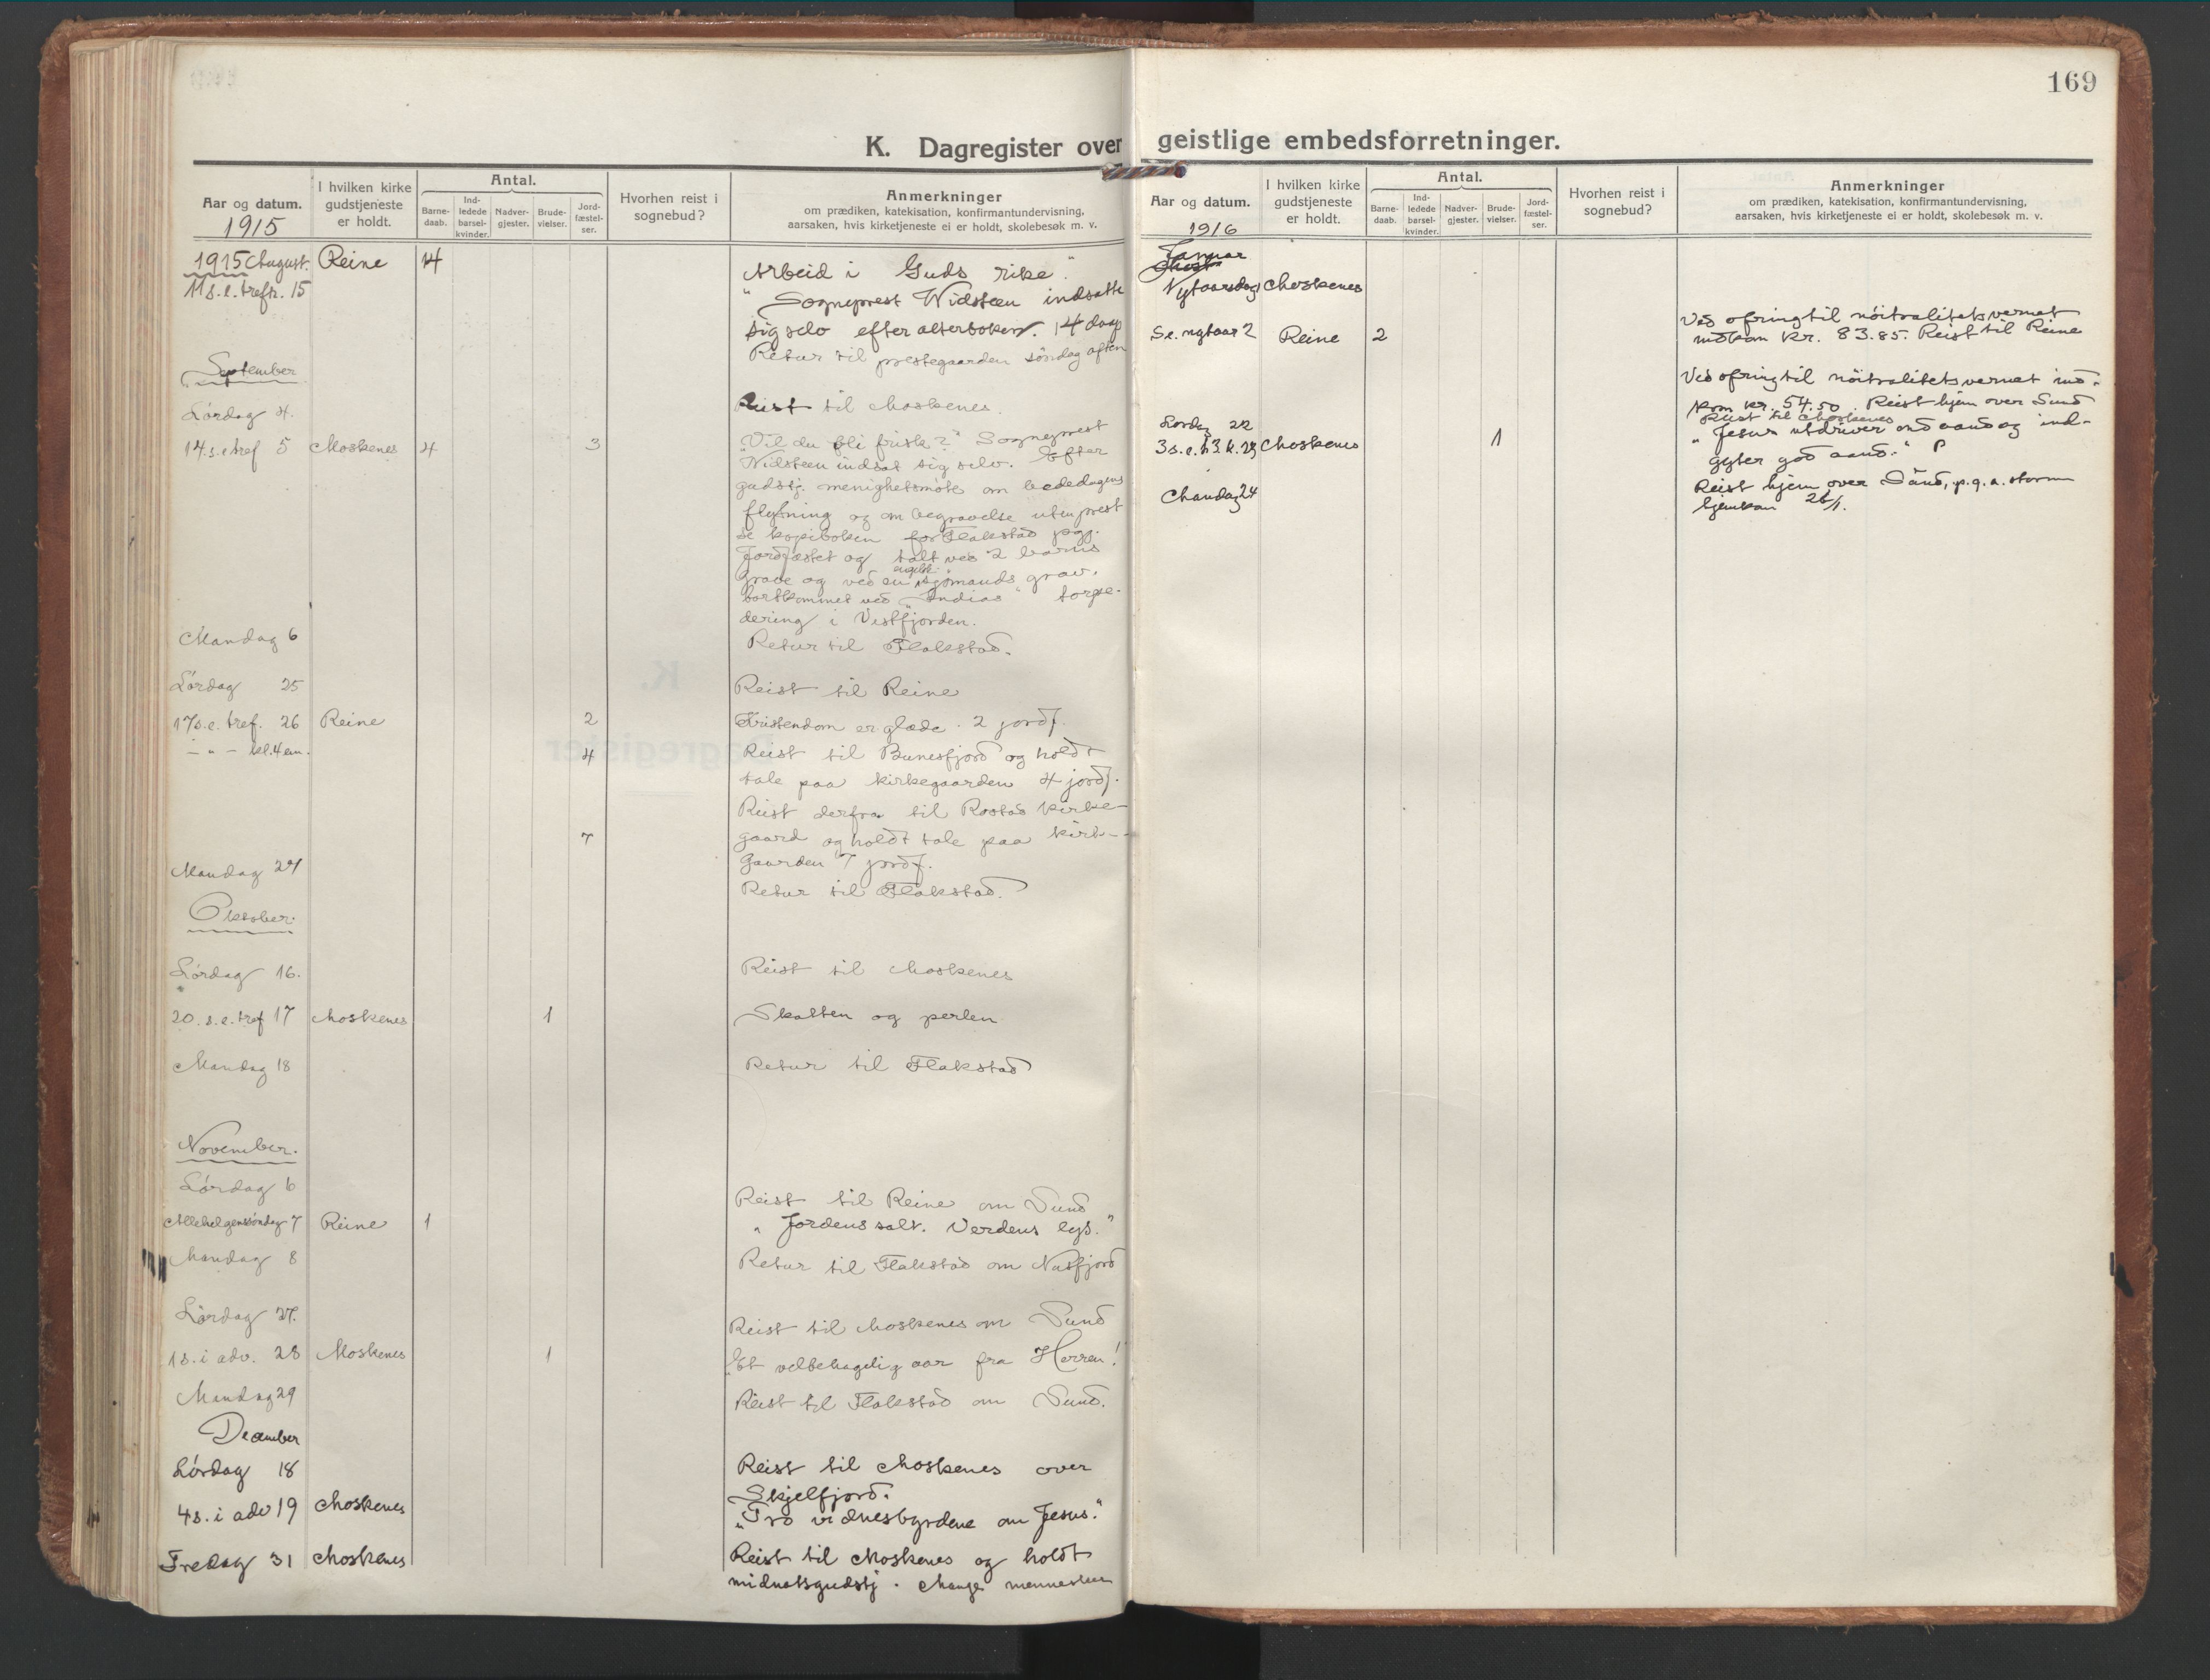 169
K. Dagregister over geistlige embedsforretninger.
Aar og datum.
1915
I hvilken kirke gudstjeneste er holdt.
Antal.
Barne-daab.
Ind-ledede barsel-kvinder.
Nadver-gjester.
Brude-vielser.
Jord-fæstel-ser.
Hvorhen reist i sognebud?
Anmerkninger
om prædiken, katekisation, konfirmantundervisning,
aarsaken, hvis kirketjeneste ei er holdt, skolebesøk m. v.
1915 August. Reine 4 "Arbeid i Guds rike."
11 s. e. trefr. 15 Sogneprest Widsteen indsatte
sig selv efter alterboken. 14 dags
Retur til prestegaarden søndag aften
September
Lördag 4. Reist til Moskenes.
14. s. e. tref 5 Moskenes 4 3 "Vil du bli frisk?" Sogneprest
Widsteen indsat sig selv. Efter
gudstj. menighetsmöte om bededagens
flytning og om begravelse uten prest
se kopiboken for Flakstad pgj.
Jordfæstet og talt ved 2 barns
grave og ved en engelsk sjömands grav,
bortkommet ved "Indias" torpe-
dering i Vestfjorden.
Mandag 6 Retur til Flakstad.
Lördag 25 Reist til Reine
17 s. e. tref. 26 Reine 2 Kristendom er glæde. 2 jordf.
- " - kl. 4 em. 4 Reist til Bunesfjord og holdt
tale paa kirkegaarden 4 jordf.
Reist derfra til Rostad kirke-
7 gaard og holdt tale paa kirke-
gaarden 7 jordf.
Mandag 27 Retur til Flakstad.
October.
Lördag 16. Reist til Moskenes
20. s. e. tref 17 Moskenes 1 Skatten og perlen
Mandag 18 Retur til Flakstad
November.
Lördag 6 Reist til Reine om Sund
Allehelgensöndag 7 Reine 1 "Jordens salt. Verdens lys."
Mandag 8 Retur til Flakstad om Nusfjord
Lördag 27. Reist til Moskenes om Sund
1 s. i adv. 28 Moskenes 1 "Et velbehagelig aar fra Herren!"
Mandag 29 Reist til Flakstad om Sund.
December
Lördag 18 Reist til Moskenes over
Skjelfjord.
4 s. i adv 19 Moskenes "Tro vidnesbyrdene om Jesus."
Fredag 31 Moskenes Reist til Moskenes og holdt
midnatsgudstj. Mange mennesker
Aar og datum.
1916
I hvilken kirke gudstjeneste er holdt.
Antal.
Barne-daab.
Ind-ledede barsel-kvinder.
Nadver-gjester.
Brude-vielser.
Jord-fæstel-ser.
Hvorhen reist i sognebud?
Anmerkninger
om prædiken, katekisation, konfirmantundervisning,
aarsaken, hvis kirketjeneste ei er holdt, skolebesøk m. v.
Januar
Nytaarsdag Moskenes Ved ofring til nöitralitetsvernet
indkom Kr. 83.85. Reist til Reine
S. e. nytaar 2 Reine 2 Ved ofring til nöitralitetsvernet ind-
kom kr. 54.50. Reist hjem over Sund
Lördag 22 Reist til Moskenes
3 s. e. h. 3 k. 23 Moskenes 1 "Jesus utdriver ond aand og ind-
gyter god aand."
Mandag 24 Reist hjem over Sund, p.g.a. storm
hjemkom 26/1.